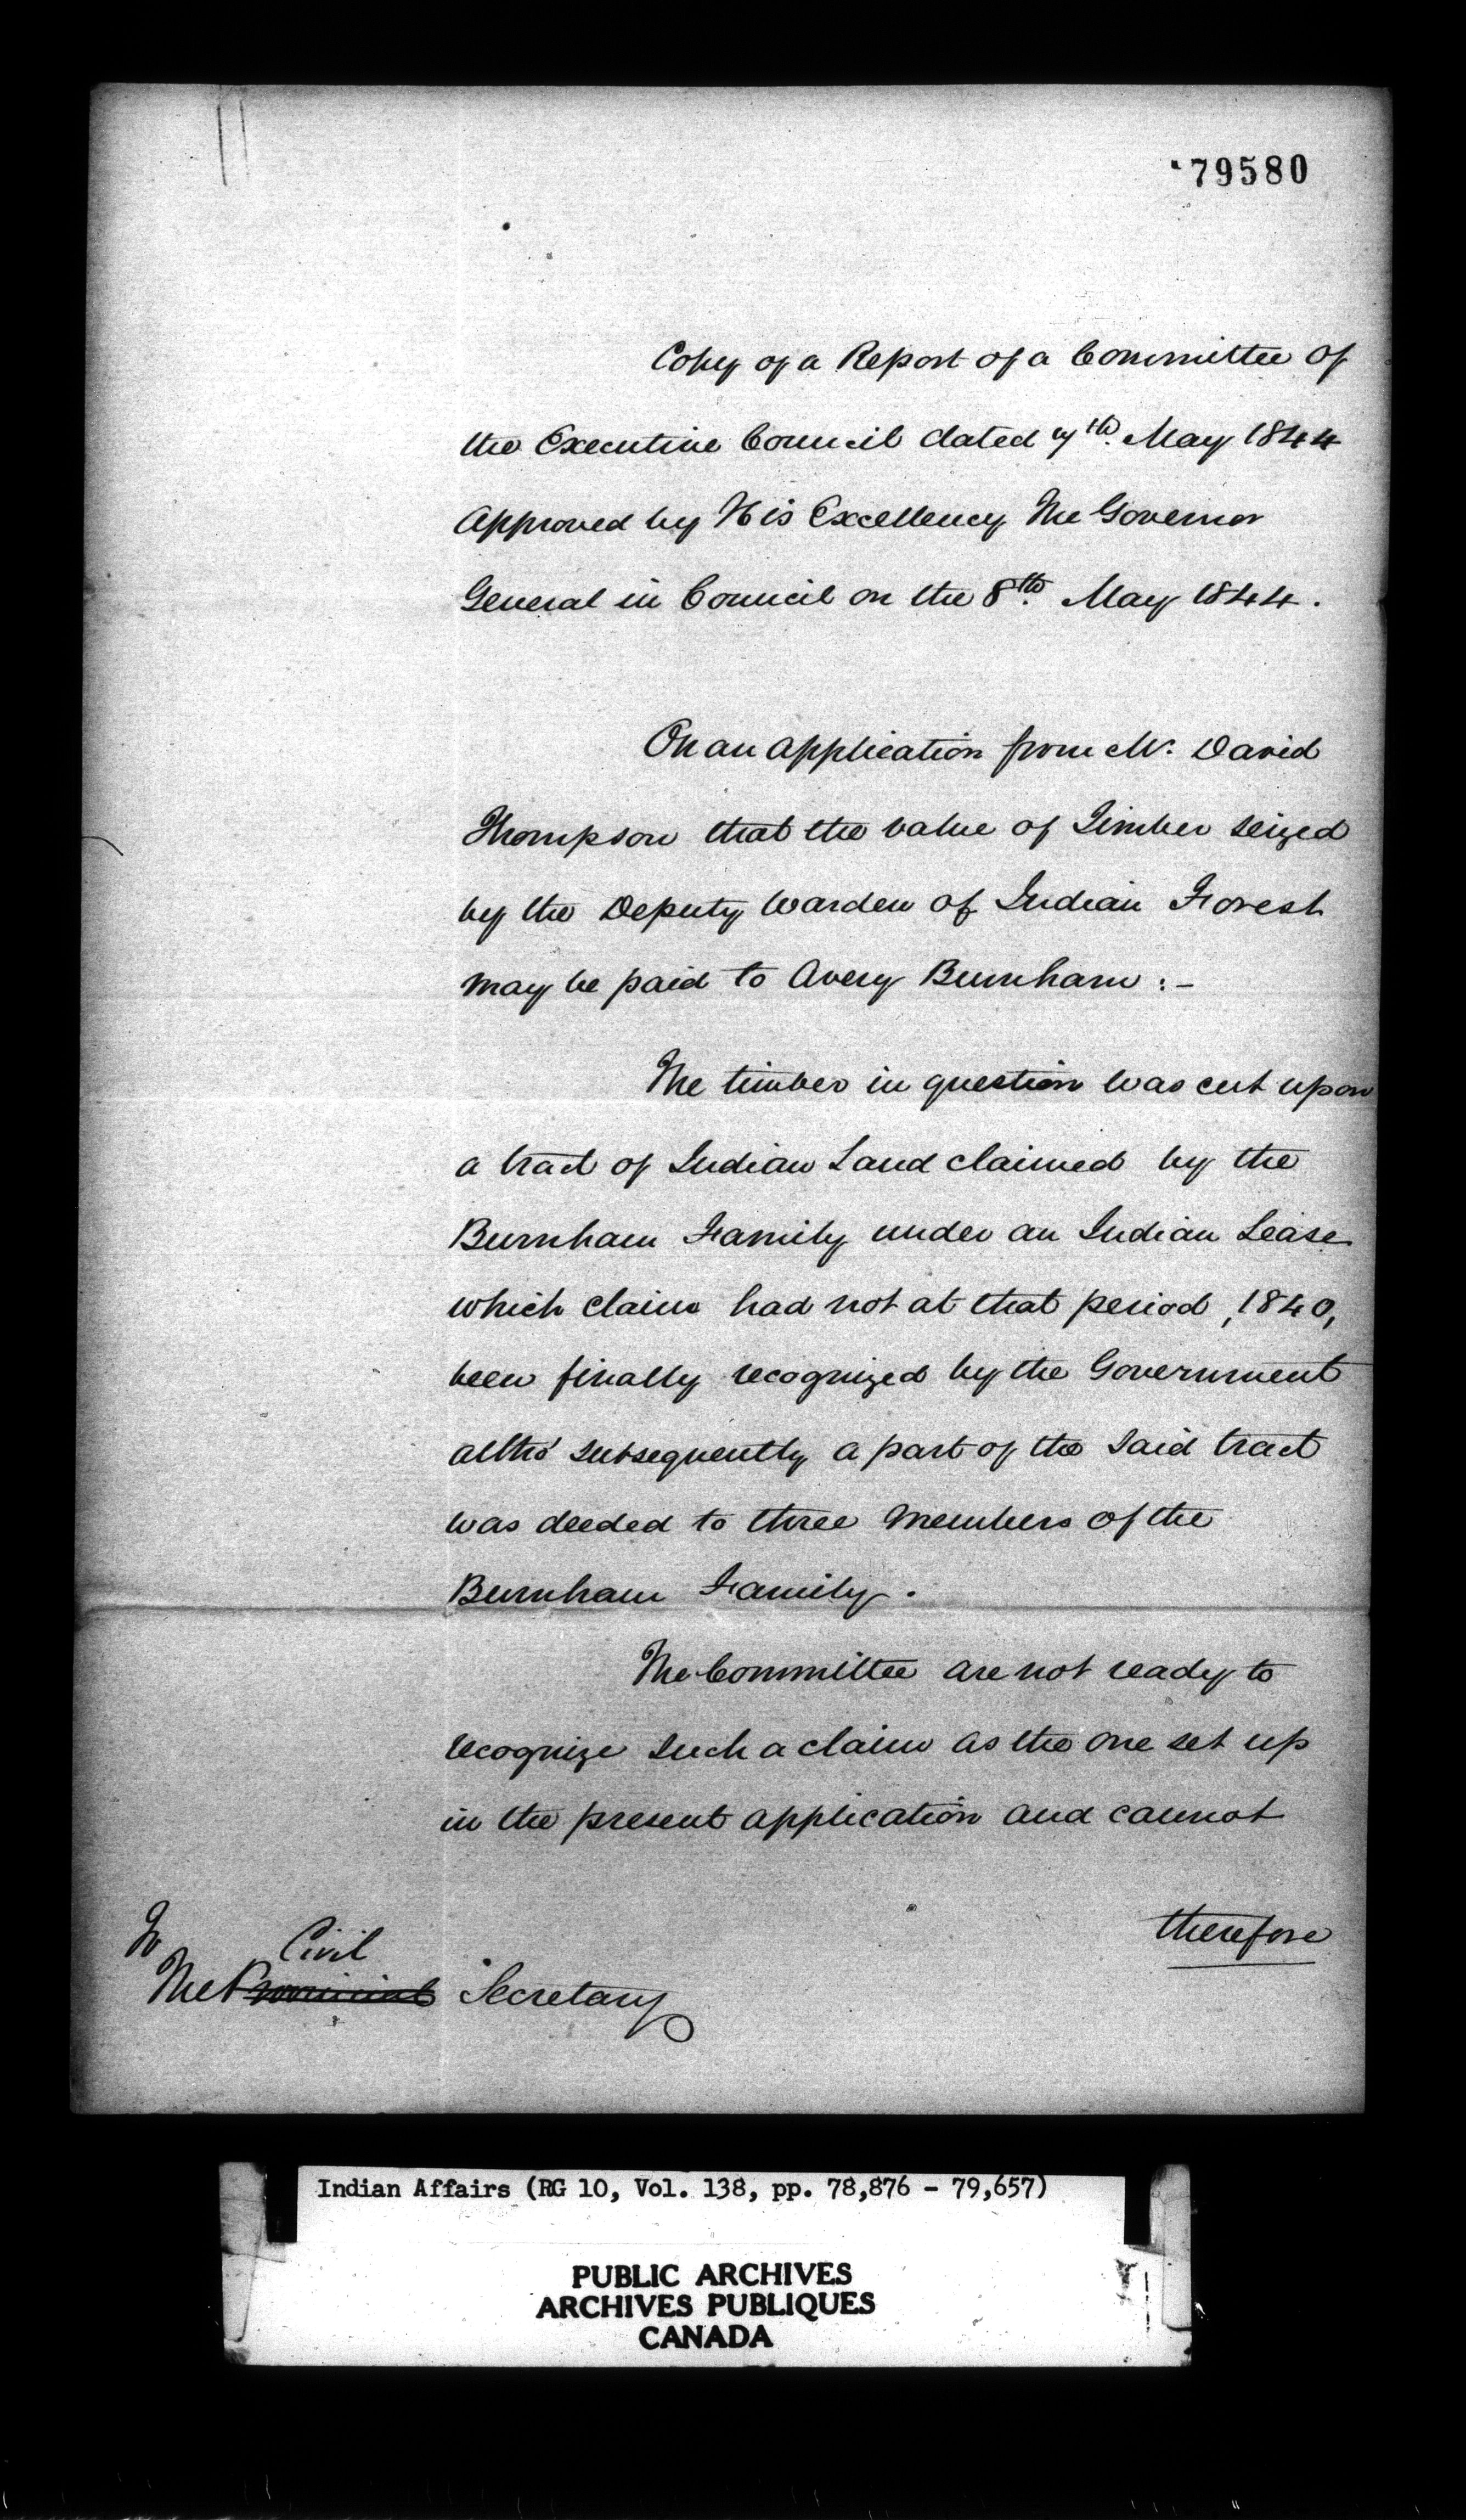 79580
Copy of a Report of a Committee of
the Executive Council dated 7th. May 1844
Approved by His Excellency The Governor
General in Council on the 8th. May 1844.
On an application from Mr. David
Thompson that the value of Timber seized
by the Deputy Warden of Indian Forest
may be paid to Avery Burnham :-
The timber in question was cut upon
a tract of Indian Land claimed by the
Burnham Family under an Indian Lease
which claim had not at that period, 1840,
been finally recognized by the Government
altho' subsequently a part of the said tract
was deeded to three Members of the
Burnham Family.
The Committee are not ready to
recognize such a claim as the one set up
in the present application and cannot
therefore
To
Civil
The Provincial Secretary
Indian Affairs (RG 10, Vol. 138, pp. 78,876 - 79,657)
PUBLIC ARCHIVES
ARCHIVES PUBLIQUES
CANADA